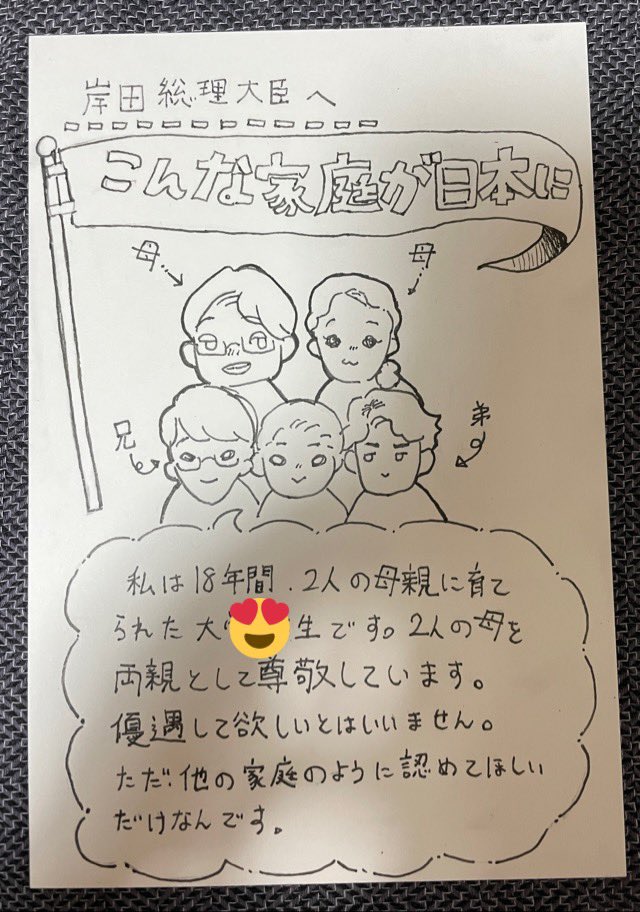 岸田総理大臣へ
こんな家庭が日本に
母
母
兄
弟
私は18年間、2人の母親に育て
られた大 生です。2人の母を
両親として尊敬しています。
優遇して欲しいとはいいません。
ただ、他の家庭のように認めてほしい
だけなんです。